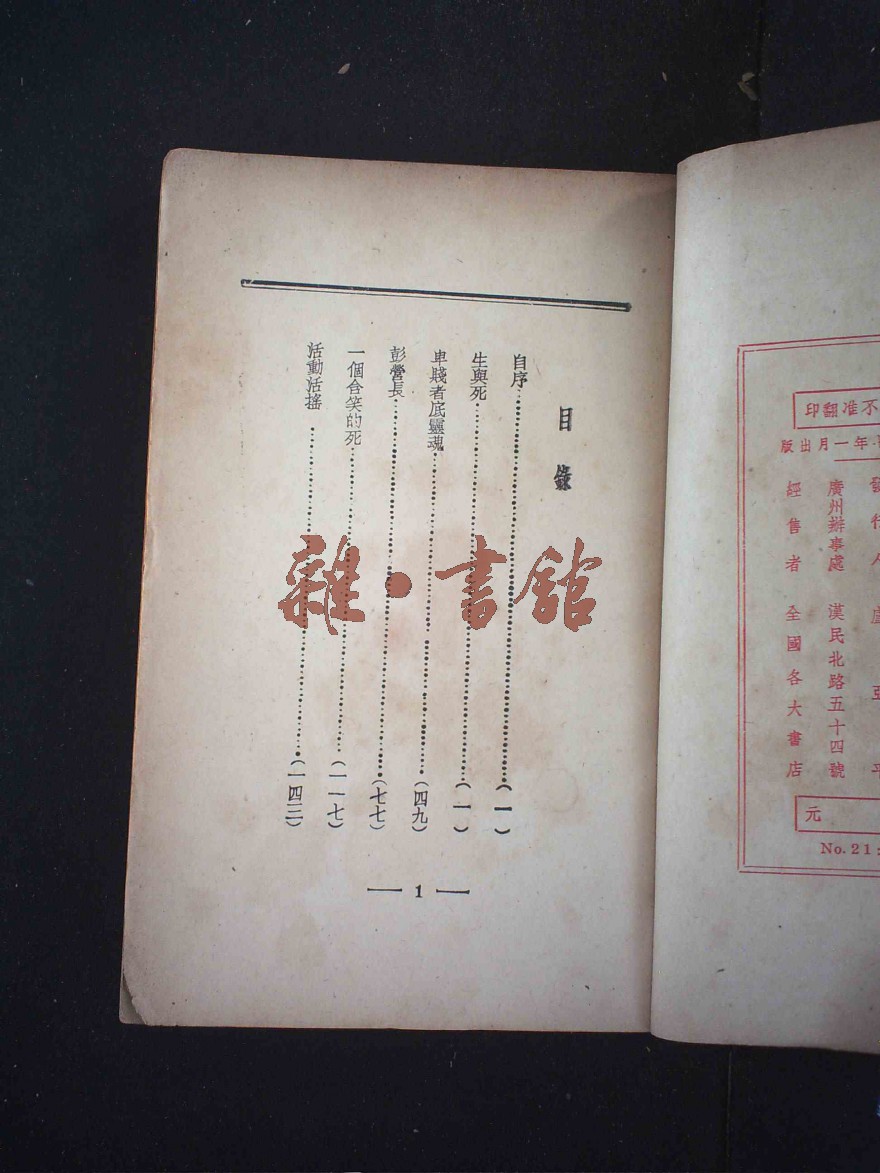 不准翻印
年一月出版
發行人 盧亞平
廣州辦事處 漢民北路五十四號
經售者 全國各大書店
元
No. 21
目錄
自序(一)
生與死(一)
卑賤者底靈魂(四九)
彭營長(七七)
一個含笑的死(一一七)
活動活搖(一四三)
1
雜·書館